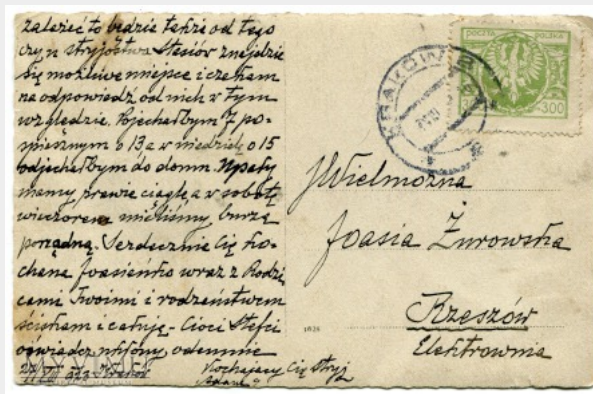 zależeć to będzie także od tego
czy u stryjostwa Stasiów znajdzie
się możliwe miejsce i czekam
na odpowiedź od nich w tym
względzie. Pojechałbym 7 po-
spiesznym o 13 a w niedzielę o 15
odjechałbym do domu. Upały
mamy prawie ciągłe a w sobotę
wieczorem mieliśmy burzę
porządną. Serdecznie Cię ko-
chana Joasieńko wraz z Rodzi
cami Twoimi i rodzeństwem
ściskam i całuję - Cioci Stefci
oświadcz ukłony odemnie
Kochający Cię Stryj
Adam
POCZTA POLSKA
300
KRAKÓW 2
JWielmożna
Joasia Żurowska
Rzeszów
Elektrownia